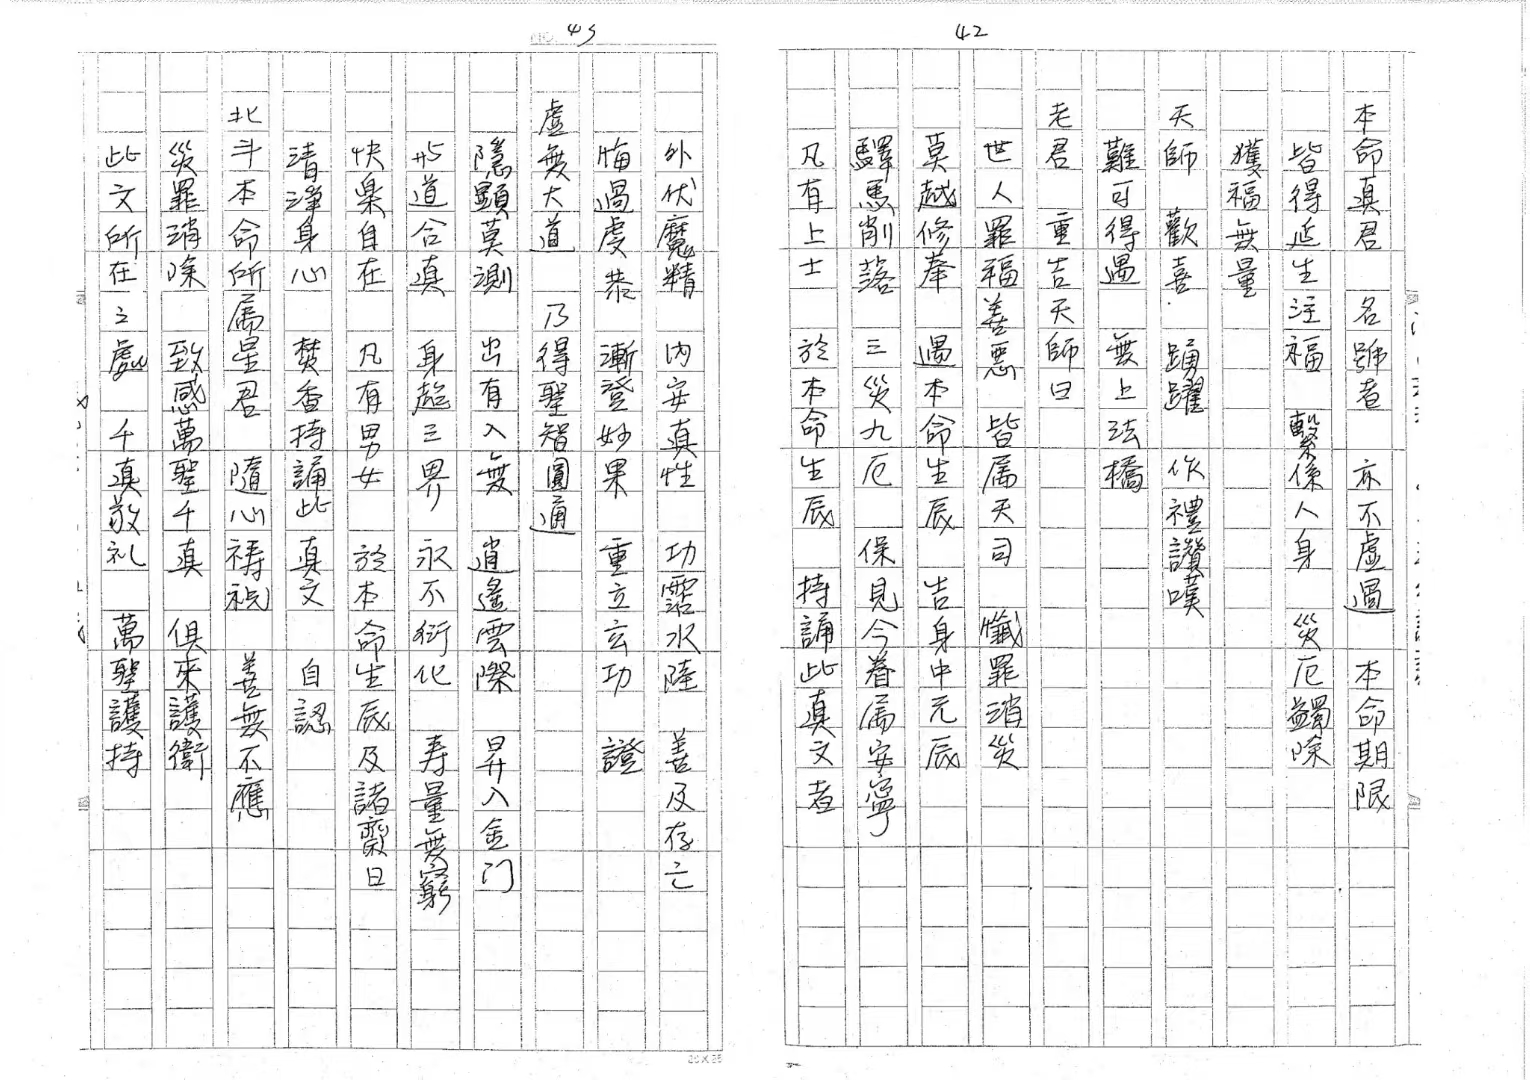 42
本命真君　名號者　亦不虛過　本命期限
皆得延生注福　繫係人身　災厄蠲除
獲福無量
天師　歡喜　踴躍　作禮讚嘆
難可得遇　無上法橋
老君　重告天師曰
世人罪福善惡　皆属天司　懺罪消災
莫越修奉　遇本命生辰　吉身中元辰
驛馬削落　三災九厄　保見今眷属安寧
凡有上士　於本命生辰　持誦此真文者
43
外伏魔精　內安真性　功霑水陸　善及存亡
悔過虔恭　漸登妙果　重立玄功　證
虛無大道　乃得聖智圓通
隱顯莫測　出有入無　逍遙雲際　昇入金门
与道合真　身超三界　永不衍化　寿量無窮
快樂自在　凡有男女　於本命生辰及諸齋日
清淨身心　焚香持誦此真文　自認
北斗本命所属星君　隨心禱祝　善無不應
災罪消除　致感萬聖千真　俱來護衛
此文所在之處　千真敬礼　萬聖護持
20×25